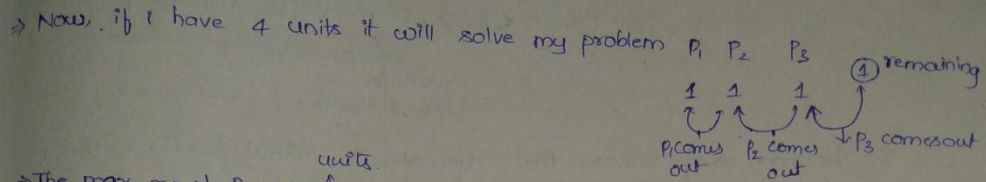 → Now, if I have 4 units it will solve my problem P1 P2 P3
1 1 1 ① remaining
P1 comes out P2 comes out P3 comes out
units.
→ The max